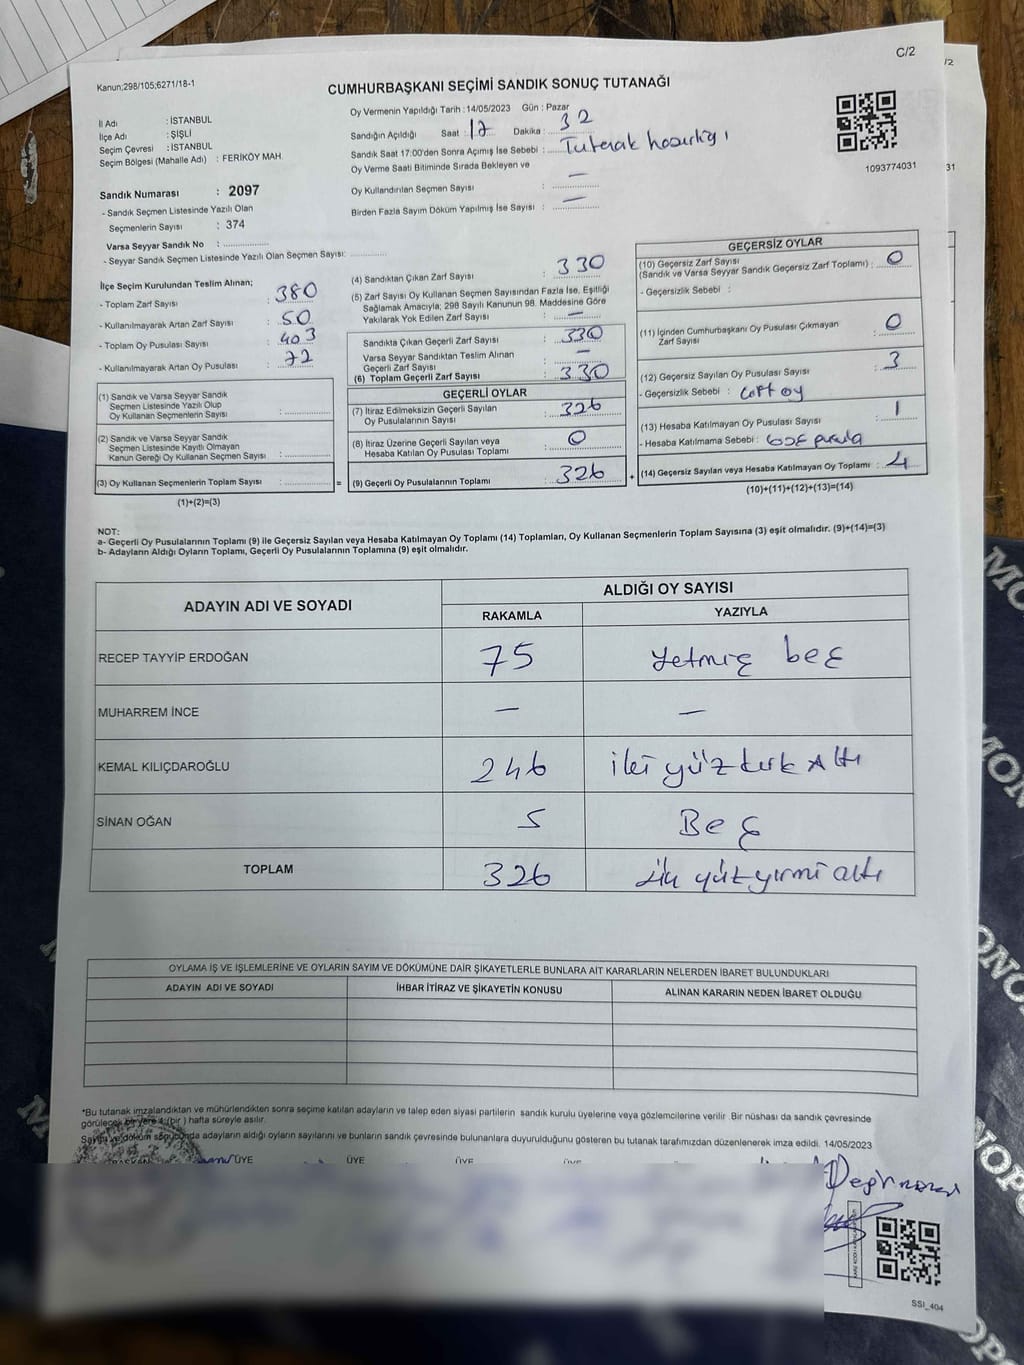 C/2
Kanun;298/105;6271/18-1
CUMHURBAŞKANI SEÇİMİ SANDIK SONUÇ TUTANAĞI
İl Adı : İSTANBUL
İlçe Adı : ŞİŞLİ
Seçim Çevresi : İSTANBUL
Seçim Bölgesi (Mahalle Adı) : FERİKÖY MAH.
Sandık Numarası : 2097
- Sandık Seçmen Listesinde Yazılı Olan
Seçmenlerin Sayısı : 374
Varsa Seyyar Sandık No :
- Seyyar Sandık Seçmen Listesinde Yazılı Olan Seçmen Sayısı:
Oy Vermenin Yapıldığı Tarih : 14/05/2023 Gün : Pazar
Sandığın Açıldığı Saat : 17 Dakika : 32
Sandık Saat 17:00'den Sonra Açımış İse Sebebi : Tutanak hazırlığı
Oy Verme Saati Bitiminde Sırada Bekleyen ve
Oy Kullandırılan Seçmen Sayısı : —
Birden Fazla Sayım Döküm Yapılmış İse Sayısı : —
1093774031
/2
31
İlçe Seçim Kurulundan Teslim Alınan;
- Toplam Zarf Sayısı : 380
- Kullanılmayarak Artan Zarf Sayısı : 50
- Toplam Oy Pusulası Sayısı : 403
- Kullanılmayarak Artan Oy Pusulası : 72
(1) Sandık ve Varsa Seyyar Sandık
Seçmen Listesinde Yazılı Olup
Oy Kullanan Seçmenlerin Sayısı :
(2) Sandık ve Varsa Seyyar Sandık
Seçmen Listesinde Kayıtlı Olmayan
Kanun Gereği Oy Kullanan Seçmen Sayısı :
(3) Oy Kullanan Seçmenlerin Toplam Sayısı : =
(1)+(2)=(3)
(4) Sandıktan Çıkan Zarf Sayısı : 330
(5) Zarf Sayısı Oy Kullanan Seçmen Sayısından Fazla İse, Eşitliği
Sağlamak Amacıyla; 298 Sayılı Kanunun 98. Maddesine Göre
Yakılarak Yok Edilen Zarf Sayısı : —
Sandıkta Çıkan Geçerli Zarf Sayısı : 330
Varsa Seyyar Sandıktan Teslim Alınan
Geçerli Zarf Sayısı : —
(6) Toplam Geçerli Zarf Sayısı : 330
GEÇERLİ OYLAR
(7) İtiraz Edilmeksizin Geçerli Sayılan
Oy Pusulalarının Sayısı : 326
(8) İtiraz Üzerine Geçerli Sayılan veya
Hesaba Katılan Oy Pusulası Toplamı : 0
(9) Geçerli Oy Pusulalarının Toplamı : 326 +
GEÇERSİZ OYLAR
(10) Geçersiz Zarf Sayısı
(Sandık ve Varsa Seyyar Sandık Geçersiz Zarf Toplamı) : 0
- Geçersizlik Sebebi :
(11) İçinden Cumhurbaşkanı Oy Pusulası Çıkmayan
Zarf Sayısı : 0
(12) Geçersiz Sayılan Oy Pusulası Sayısı : 3
- Geçersizlik Sebebi : çift oy
(13) Hesaba Katılmayan Oy Pusulası Sayısı : 1
- Hesaba Katılmama Sebebi : boş pusula
(14) Geçersiz Sayılan veya Hesaba Katılmayan Oy Toplamı : 4
(10)+(11)+(12)+(13)=(14)
NOT:
a- Geçerli Oy Pusulalarının Toplamı (9) ile Geçersiz Sayılan veya Hesaba Katılmayan Oy Toplamı (14) Toplamları, Oy Kullanan Seçmenlerin Toplam Sayısına (3) eşit olmalıdır. (9)+(14)=(3)
b- Adayların Aldığı Oyların Toplamı, Geçerli Oy Pusulalarının Toplamına (9) eşit olmalıdır.
ADAYIN ADI VE SOYADI ALDIĞI OY SAYISI
RAKAMLA YAZIYLA
RECEP TAYYİP ERDOĞAN 75 Yetmiş beş
MUHARREM İNCE — —
KEMAL KILIÇDAROĞLU 246 iki yüz kırk Altı
SİNAN OĞAN 5 Beş
TOPLAM 326 üç yüz yirmi altı
OYLAMA İŞ VE İŞLEMLERİNE VE OYLARIN SAYIM VE DÖKÜMÜNE DAİR ŞİKAYETLERLE BUNLARA AİT KARARLARIN NELERDEN İBARET BULUNDUKLARI
ADAYIN ADI VE SOYADI İHBAR İTİRAZ VE ŞİKAYETİN KONUSU ALINAN KARARIN NEDEN İBARET OLDUĞU
*Bu tutanak imzalandıktan ve mühürlendikten sonra seçime katılan adayların ve talep eden siyasi partilerin sandık kurulu üyelerine veya gözlemcilerine verilir. Bir nüshası da sandık çevresinde
görülecek bir yere 1 (bir) hafta süreyle asılır.
Sayım ve döküm sonucunda adayların aldığı oyların sayılarını ve bunların sandık çevresinde bulunanlara duyurulduğunu gösteren bu tutanak tarafımızdan düzenlenerek imza edildi. 14/05/2023
BAŞKAN ÜYE ÜYE ÜYE ÜYE
SSI_404
MONOPO